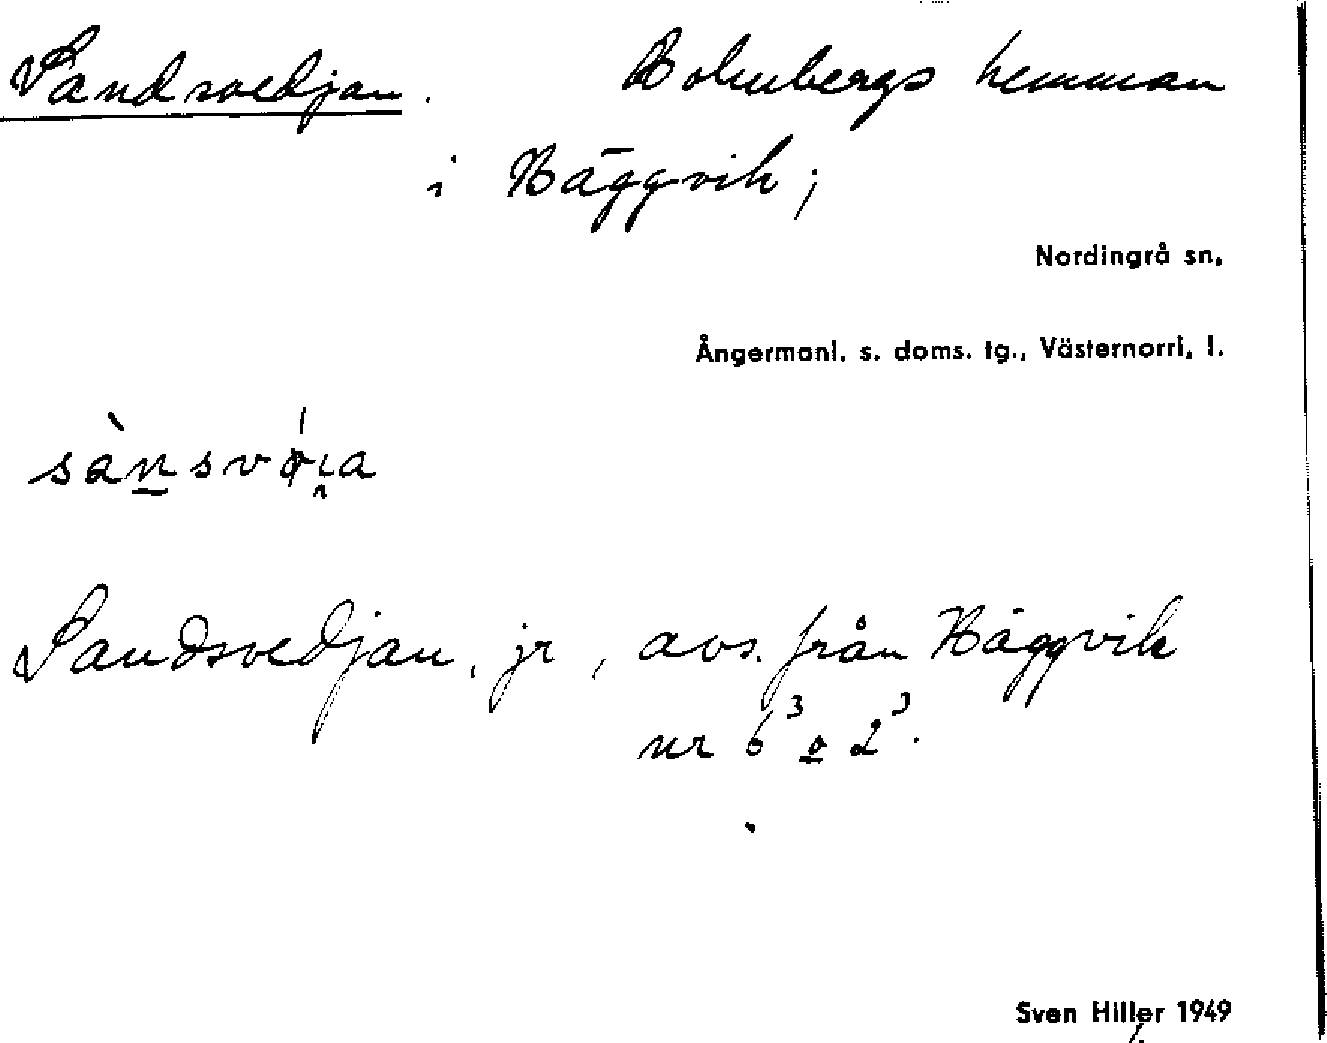 Sandsvedjan. Holmbergs hemman
i Häggvik;
Nordingrå sn,
Ångermanl. s. doms. tg., Västernorrl. l.
Sandsvedjan, jr, avs. från Häggvik
nr 6³ o 2³.
Sven Hiller 1949